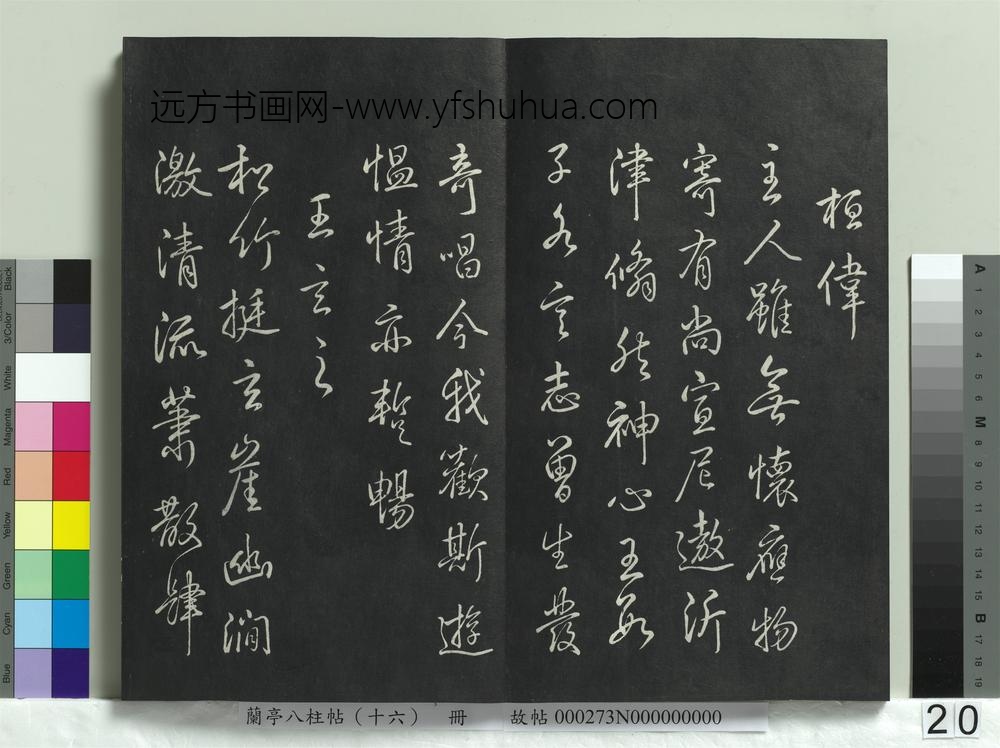 远方书画网-www.yfshuhua.com
桓偉
主人雖無懷應物
寄有尚宣尼遨沂
津翛然神心王數
子各言志曾生發
奇唱今我歡斯遊
愠情亦暫暢
王玄之
松竹挺玄崖幽澗
激清流蕭散肆
蘭亭八柱帖（十六） 冊 故帖 000273N000000000
20
Black
3/Color
White
Magenta
Red
Yellow
Green
Cyan
Blue
A 1 2 3 4 5 6 M 8 9 10 11 12 13 14 15 B 17 18 19